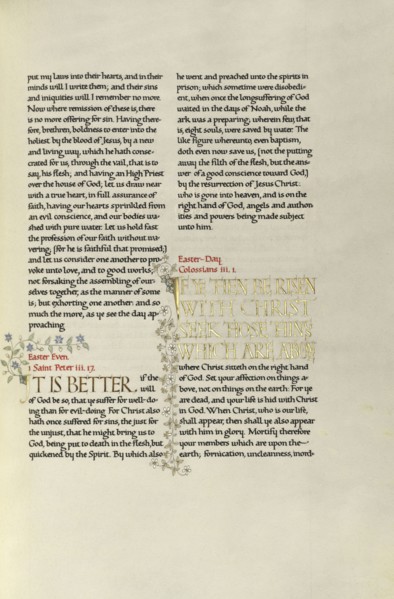 put my laws into their hearts, and in their
minds will I write them; and their sins
and iniquities will I remember no more.
Now where remission of these is, there
is no more offering for sin. Having there-
fore, brethren, boldness to enter into the
holiest by the blood of Jesus, by a new
and living way, which he hath conse-
crated for us, through the vail, that is to
say, his flesh; and having an High Priest
over the house of God; let us draw near
with a true heart, in full assurance of
faith, having our hearts sprinkled from
an evil conscience, and our bodies wa-
shed with pure water. Let us hold fast
the profession of our faith without wa-
vering; (for he is faithful that promised;)
and let us consider one another to pro-
voke unto love, and to good works;
not forsaking the assembling of our-
selves together, as the manner of some
is; but exhorting one another: and so
much the more, as ye see the day ap-
proaching
Easter Even.
1 Saint Peter iii. 17.
IT IS BETTER, if the
will
of God be so, that ye suffer for well-do-
ing than for evil-doing. For Christ also
hath once suffered for sins, the just for
the unjust, that he might bring us to
God, being put to death in the flesh, but
quickened by the Spirit. By which also
he went and preached unto the spirits in
prison; which sometime were disobedi-
ent, when once the longsuffering of God
waited in the days of Noah, while the
ark was a preparing, wherein few, that
is, eight souls, were saved by water. The
like figure whereunto, even baptism,
doth even now save us, (not the putting
away the filth of the flesh, but the ans-
wer of a good conscience toward God,)
by the resurrection of Jesus Christ:
who is gone into heaven, and is on the
right hand of God, angels and author-
ities and powers being made subject
unto him.
Easter-Day.
Colossians iii. 1.
IF YE THEN BE RISEN
WITH CHRIST
SEEK THOSE THINGS
WHICH ARE ABOVE
where Christ sitteth on the right hand
of God. Set your affection on things a-
bove, not on things on the earth: For ye
are dead, and your life is hid with Christ
in God. When Christ, who is our life,
shall appear, then shall ye also appear
with him in glory. Mortify therefore
your members which are upon the
earth; fornication, uncleanness, inord-